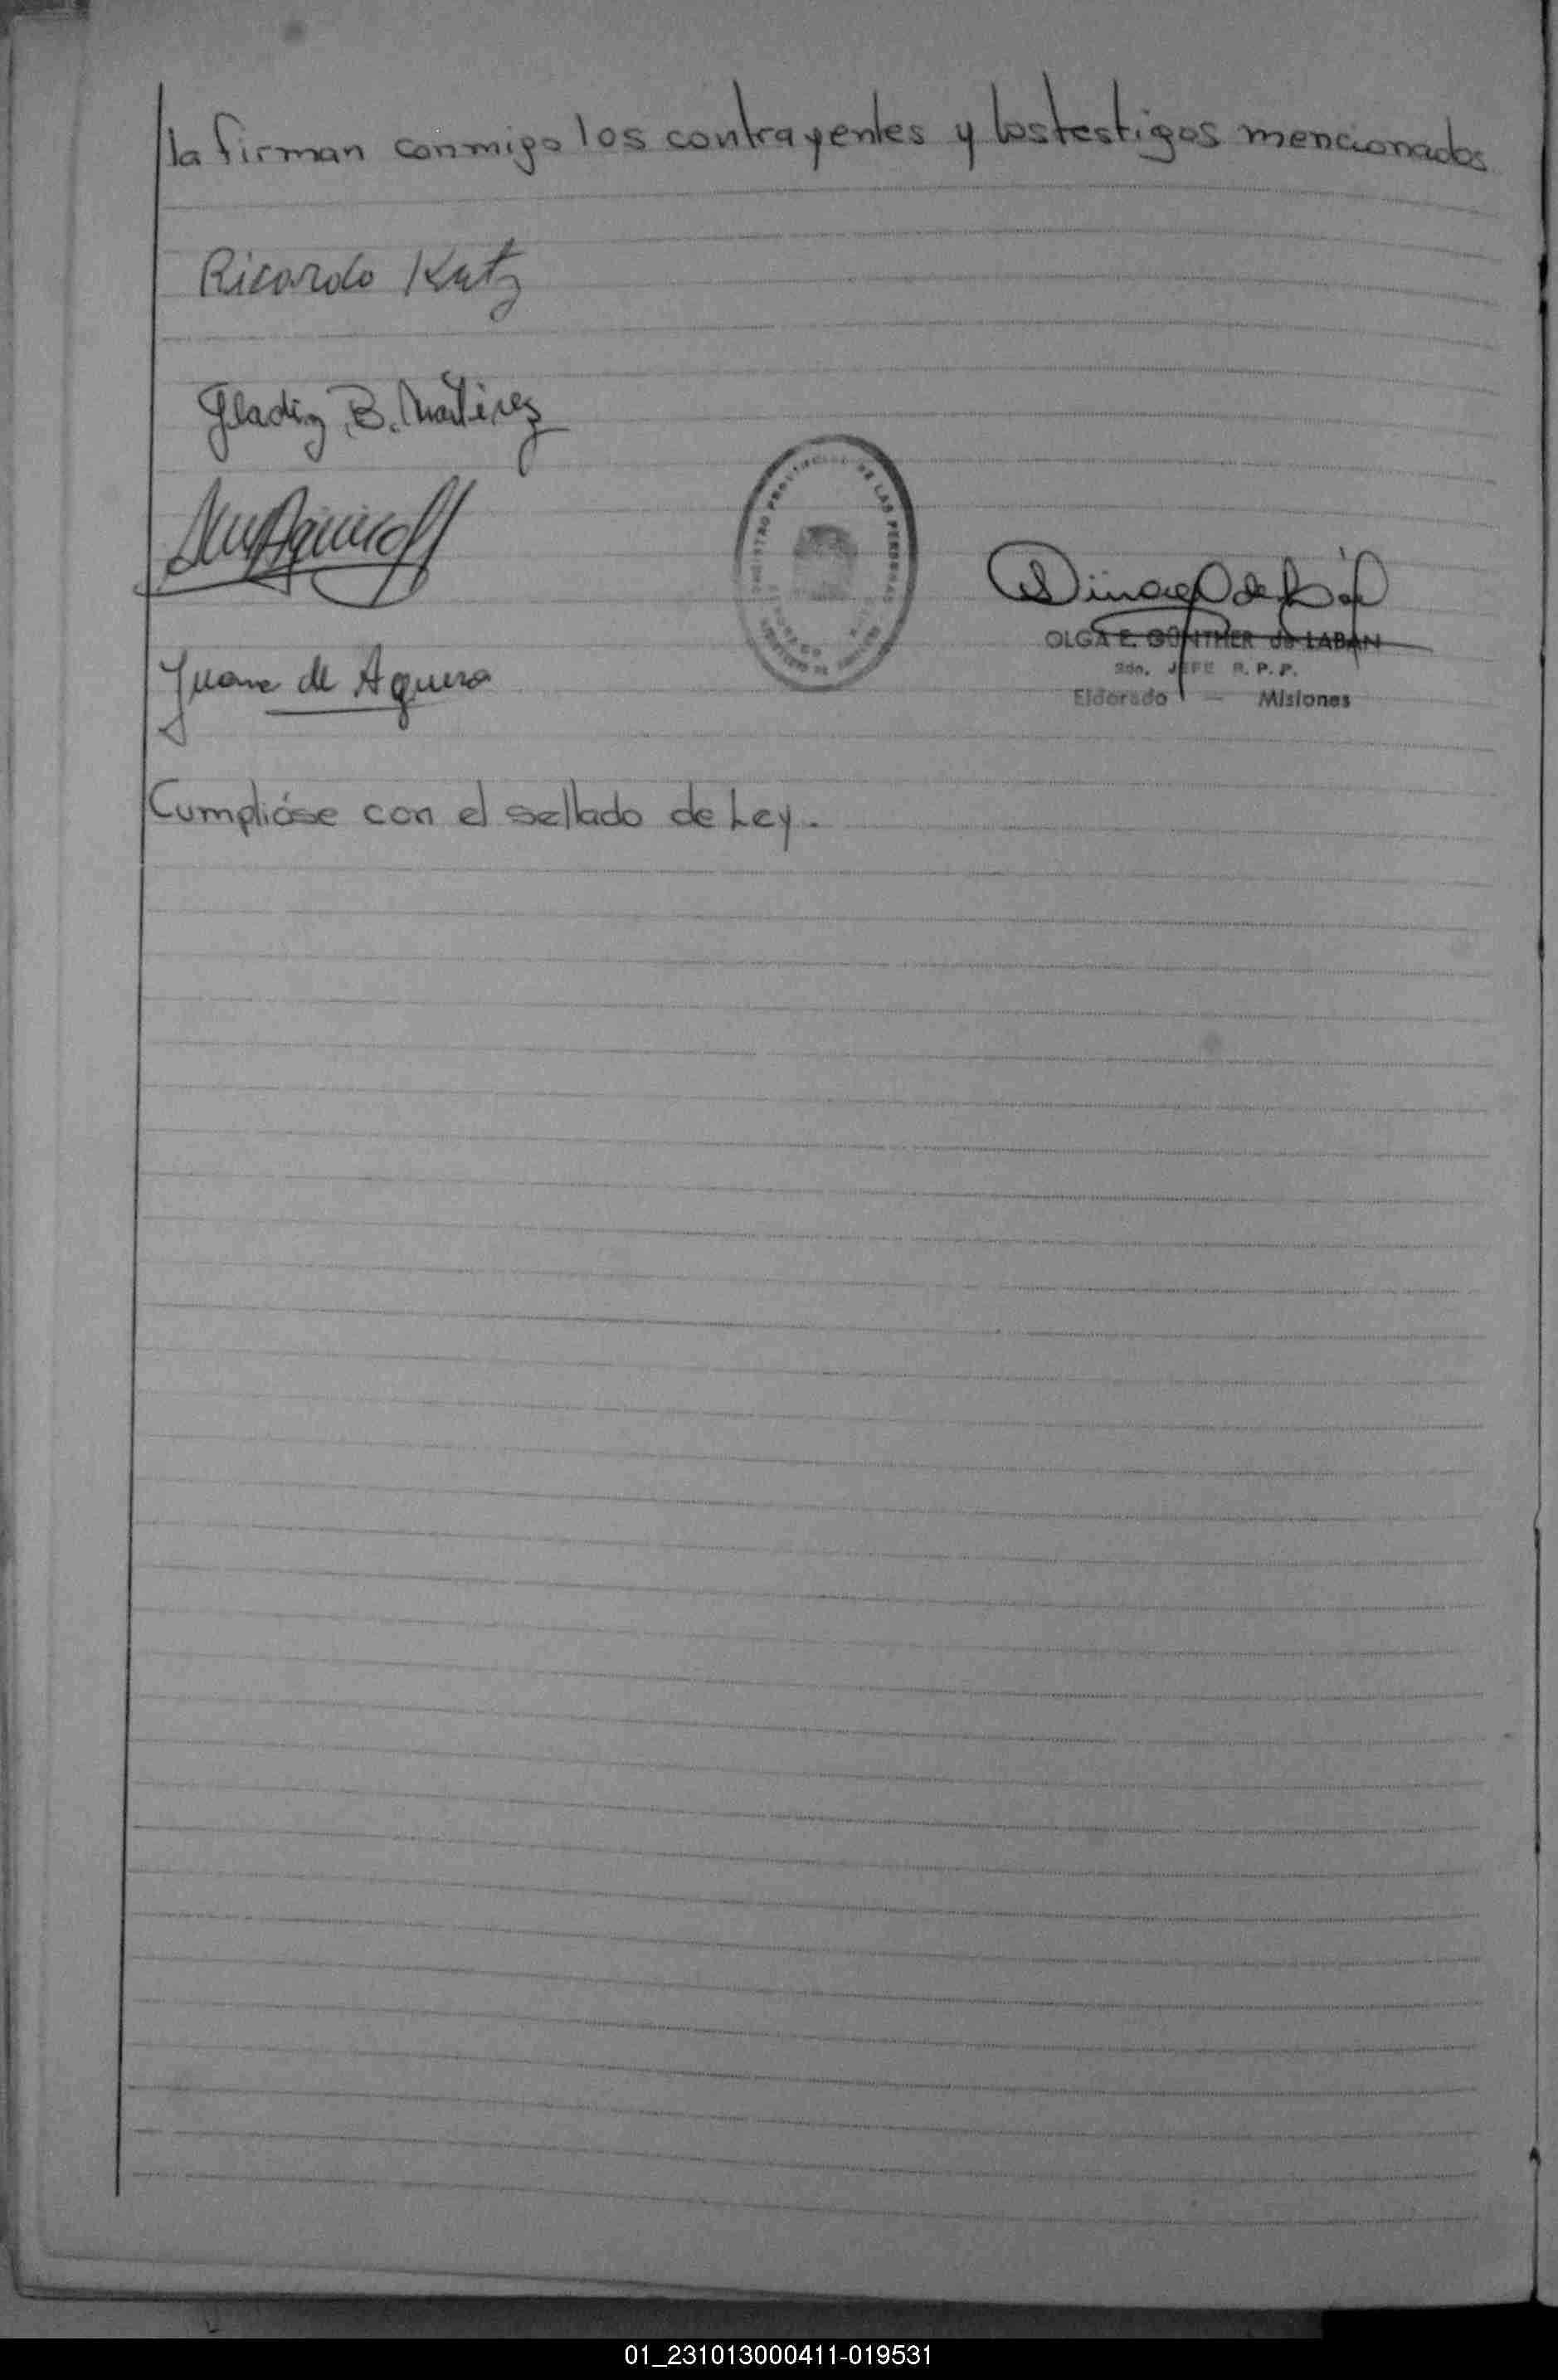 la firman conmigo los contrayentes y los testigos mencionados
Ricardo Katz
Gladiz B. Martinez
REGISTRO PROVINCIAL DE LAS PERSONAS
OLGA E. GÜNTHER de LABAN
2do. JEFE R. P. P.
Eldorado - Misiones
Juana de Aguero
Cumplióse con el sellado de Ley.
01_231013000411-019531